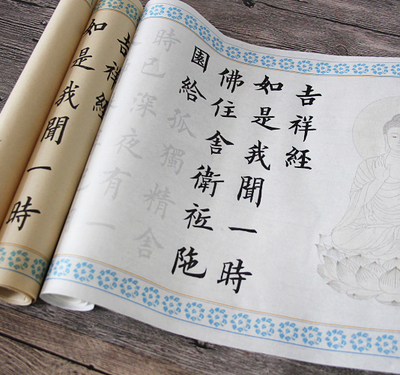 吉祥經
如是我聞一時
佛住舍衛祗陁
園給孤獨精舍
時已深夜有一
吉祥經
如是我聞一時